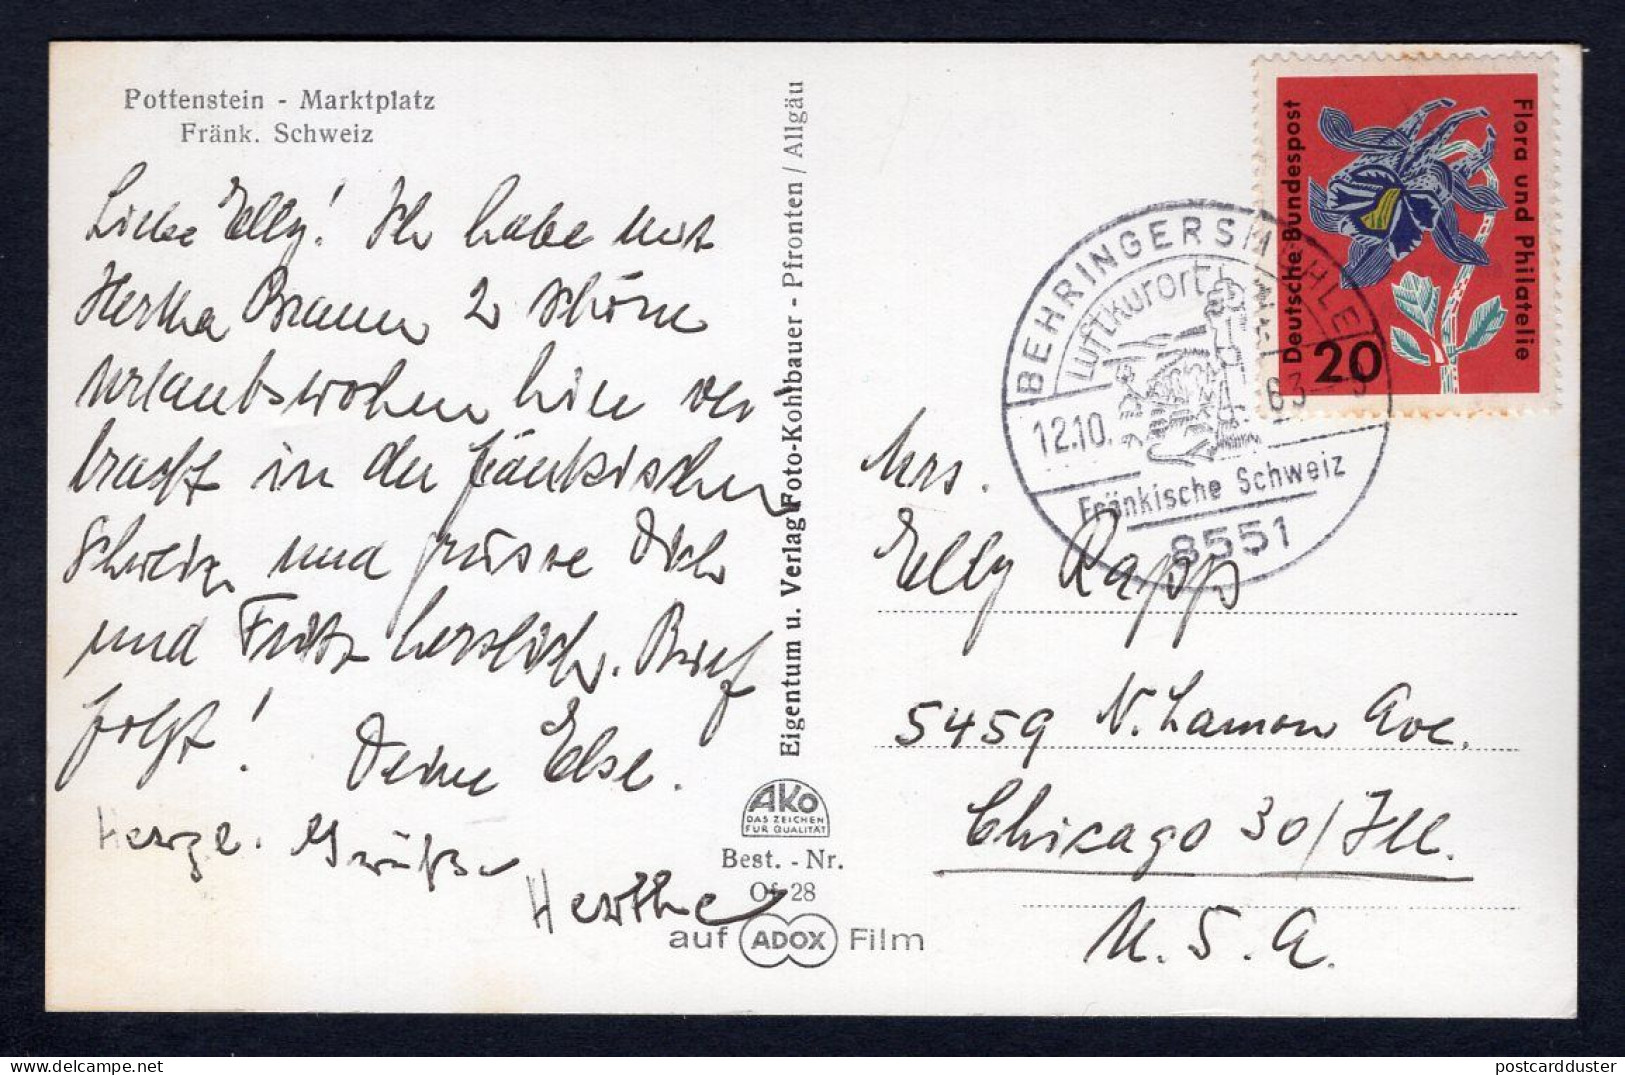 Pottenstein - Marktplatz
Fränk. Schweiz
Liebe Elly! Ich habe mit
Hertha Braun 2 schöne
Urlaubswochen hier ver
bracht in der fränkischen
Schweiz und grüsse Dich
und Fritz herzlich. Brief
folgt! Deine Else.
Herzl. Grüße
Herthe
Eigentum u. Verlag Foto-Kohlbauer - Pfronten / Allgäu
AKO
DAS ZEICHEN
FÜR QUALITÄT
Best. - Nr.
Of 28
auf ADOX Film
Deutsche Bundespost
Flora und Philatelie
20
BEHRINGERSMÜHLE
Luftkurort
12.10. 63
Fränkische Schweiz
8551
Mrs.
Elly Rapp
5459 N. Lamon Ave.
Chicago 30/Ill.
U. S. A.
postcardduster